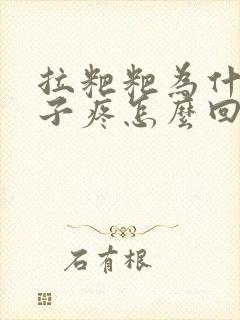 拉粑粑為什
子疼怎麼回
石有根